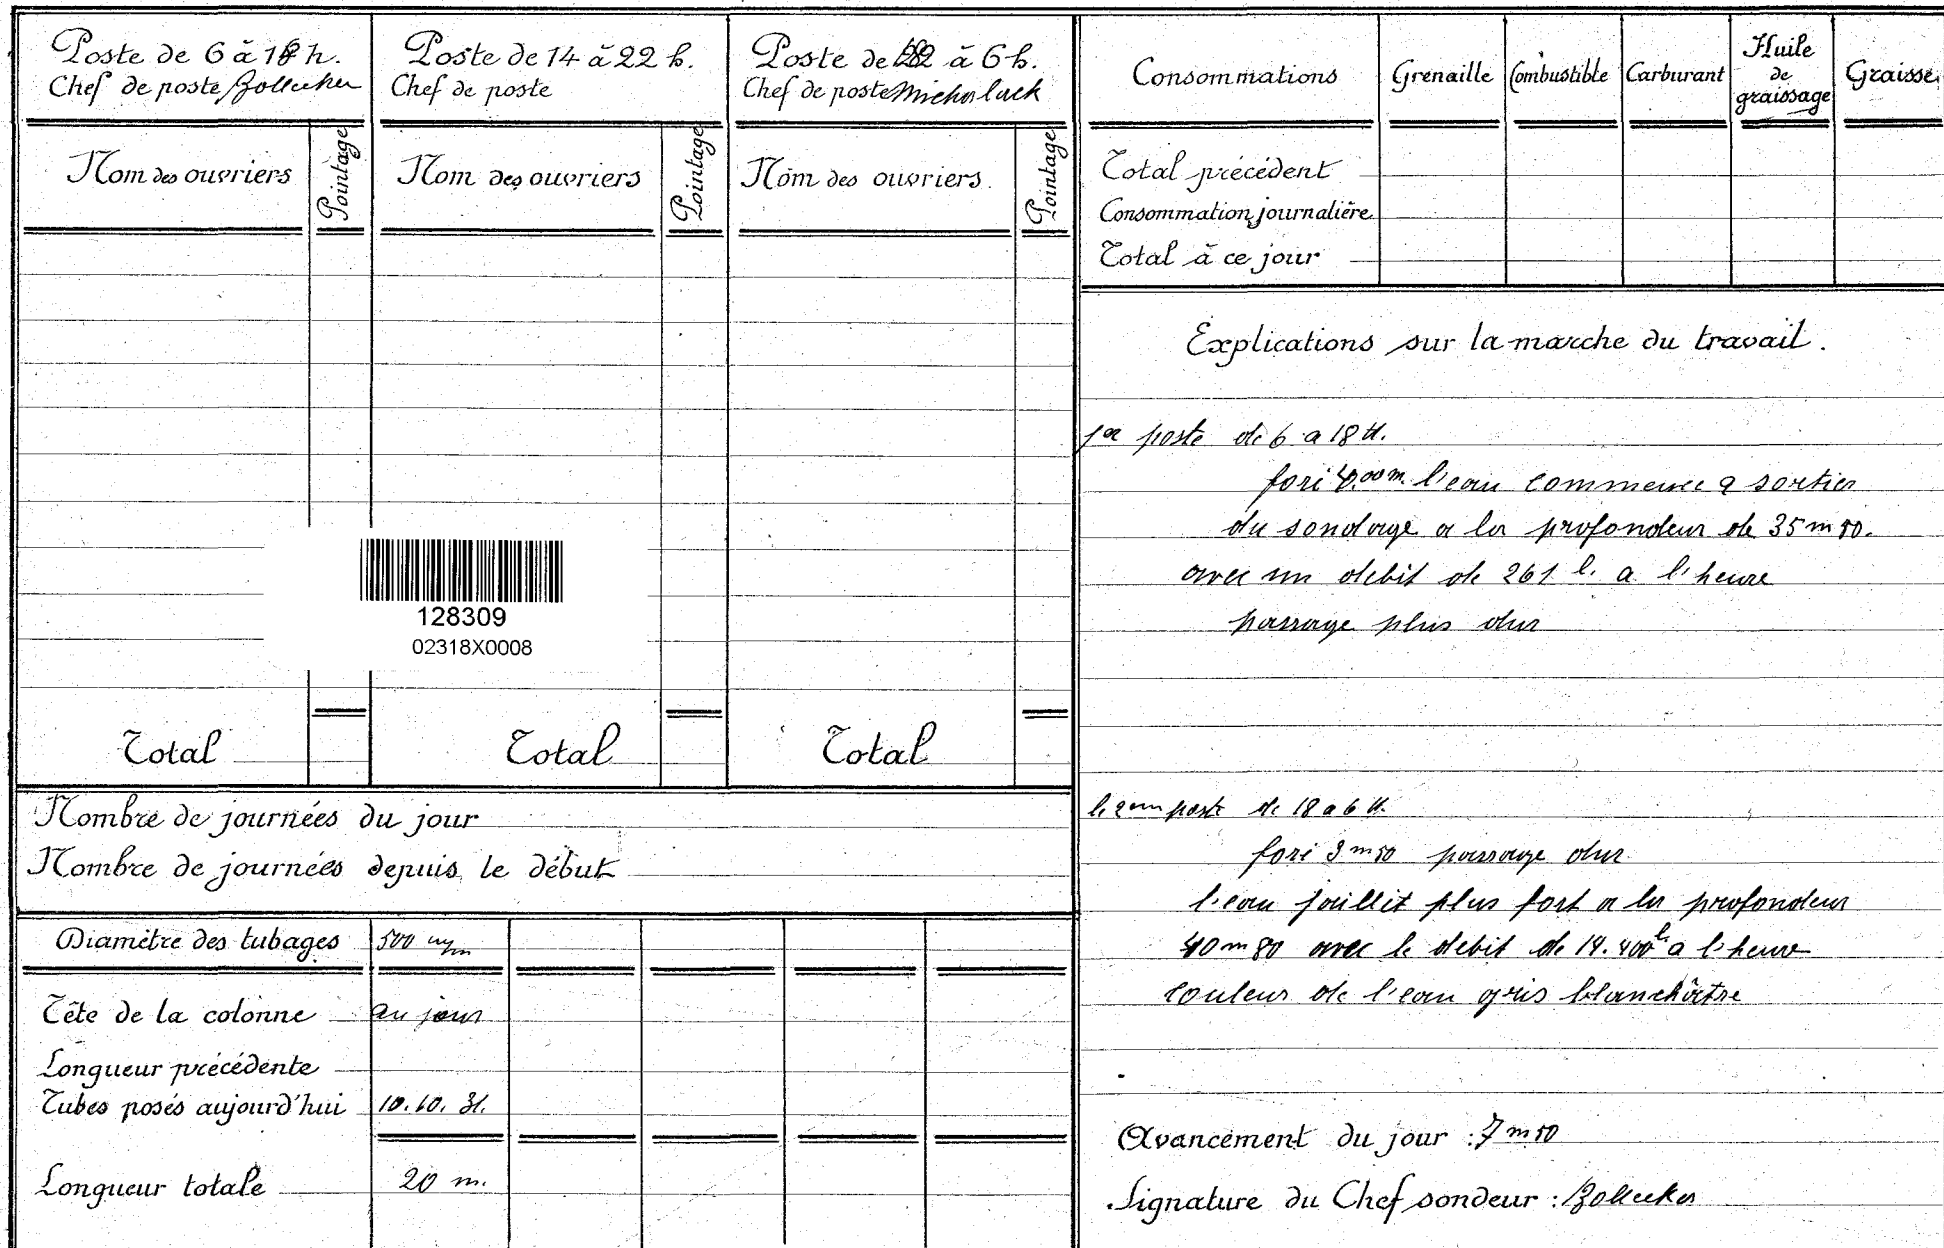 Poste de 6 à 18 h.
Chef de poste Zollecker
Poste de 14 à 22 h.
Chef de poste
Poste de 18 à 6 h.
Chef de poste
Nom des ouvriers
Pointage
Nom des ouvriers
Pointage
Nom des ouvriers.
Pointage
Total
Total
Total
128309
02318X0008
Nombre de journées du jour
Nombre de journées depuis le début
Diamètre des tubages 500 m/m
Tête de la colonne au jour
Longueur précédente
Tubes posés aujourd'hui 10.10.31.
Longueur totale 20 m.
Consommations
Grenaille
Combustible
Carburant
Huile
de
graissage
Graisse
Total précédent
Consommation journalière
Total à ce jour
Explications sur la marche du travail.
1er poste de 6 a 18 H.
foré 4.00 m. l'eau commence a sortier
du sondage a la profondeur de 35 m 50.
avec un debit de 261 l. a l'heure
passage plus dur
le 2em poste de 18 a 6 H.
foré 3 m 50 passage dur
l'eau jaillit plus fort a la profondeur
40 m 80 avec le debit de 14.400 l. a l'heure
couleur de l'eau gris blanchâtre
Avancement du jour : 7 m 50
Signature du Chef sondeur : Zollecker